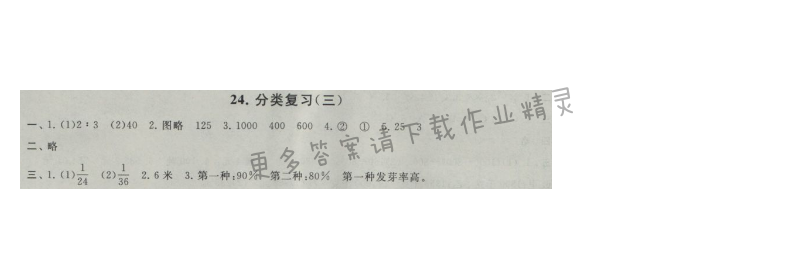 24. 分类复习(三)
一、1. (1)2∶3 (2)40 2. 图略 125 3. 1000 400 600 4. ② ① 5. 25 3
二、略
三、1. (1)1/24 (2)1/36 2. 6 米 3. 第一种:90% 第二种:80% 第一种发芽率高。
更多答案请下载作业精灵